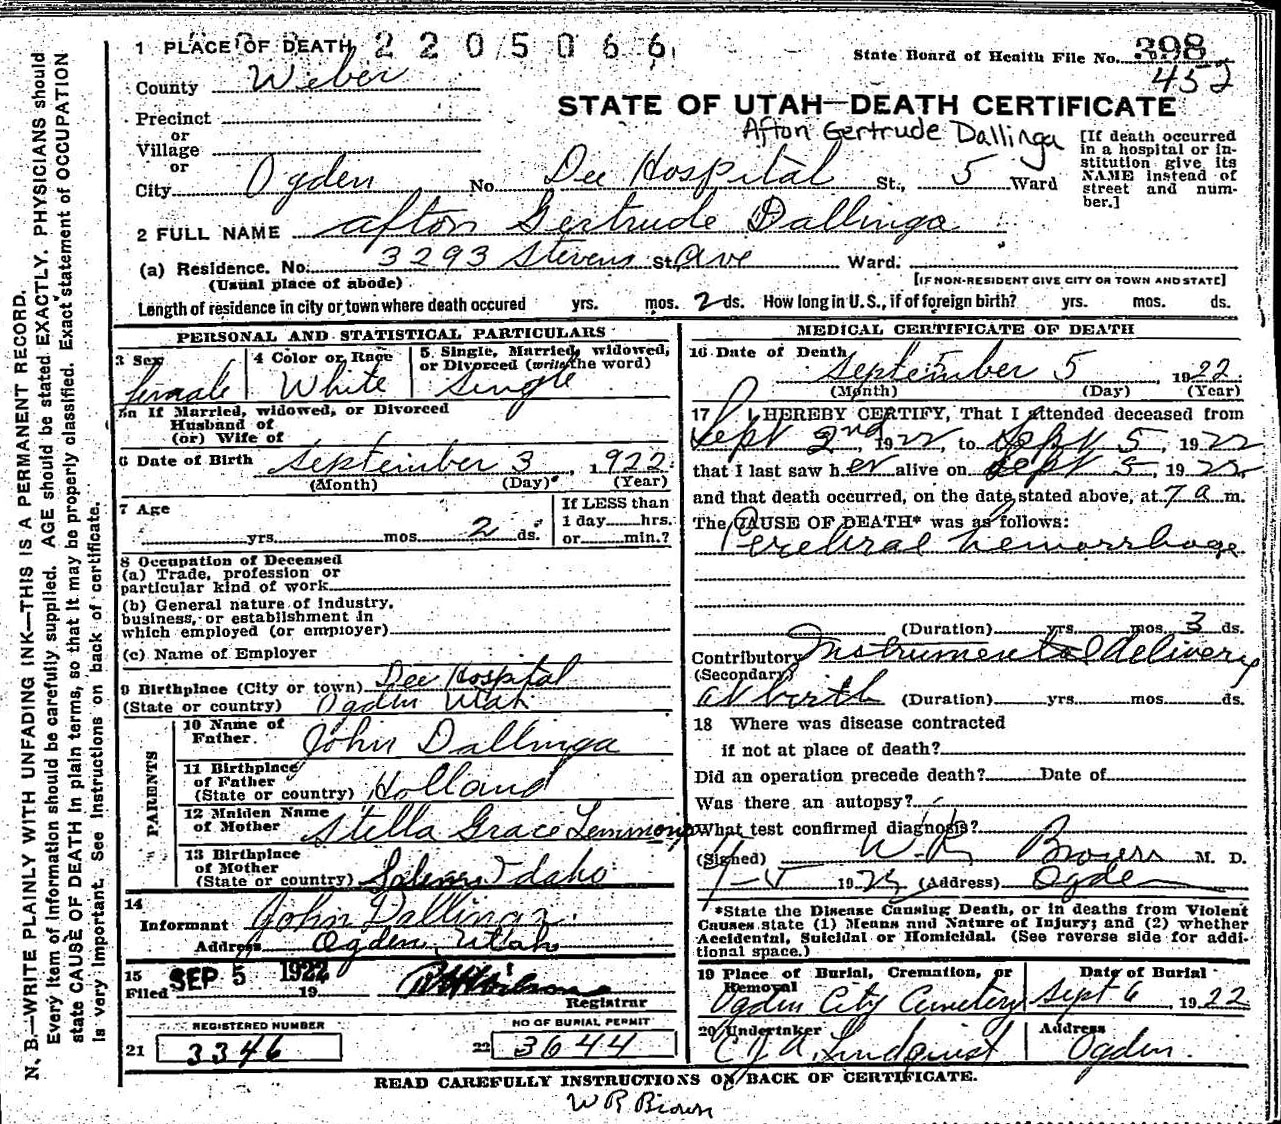 1 PLACE OF DEATH 2205066
State Board of Health File No. 398
452
County Weber
STATE OF UTAH—DEATH CERTIFICATE
Precinct
or
Village
or
Afton Gertrude Dallinga
[If death occurred in a hospital or institution give its NAME instead of street and number.]
City Ogden No. Dee Hospital St., 5 Ward
2 FULL NAME Afton Gertrude Dallinga
(a) Residence. No. 3293 Stevens St. Ave Ward.
(Usual place of abode) [IF NON-RESIDENT GIVE CITY OR TOWN AND STATE]
Length of residence in city or town where death occured yrs. mos. 2 ds. How long in U. S., if of foreign birth? yrs. mos. ds.
PERSONAL AND STATISTICAL PARTICULARS
3 Sex
female
4 Color or Race
White
5. Single, Married, widowed,
or Divorced (write the word)
Single
5a If Married, widowed, or Divorced
Husband of
(or) Wife of
6 Date of Birth September 3, 1922
(Month) (Day) (Year)
7 Age
yrs. mos. 2 ds.
If LESS than
1 day hrs.
or min.?
8 Occupation of Deceased
(a) Trade, profession or
particular kind of work
(b) General nature of Industry,
business, or establishment in
which employed (or employer)
(c) Name of Employer
9 Birthplace (City or town) Dee Hospital
(State or country) Ogden Utah
PARENTS
10 Name of
Father John Dallinga
11 Birthplace
of Father
(State or country) Holland
12 Maiden Name
of Mother Stella Grace Lemmons
13 Birthplace
of Mother
(State or country) Idaho
14
Informant John Dallinga
Address Ogden, Utah
15
Filed SEP 5 1922
19
Registrar
REGISTERED NUMBER
21 3346
NO OF BURIAL PERMIT
22 3644
MEDICAL CERTIFICATE OF DEATH
16 Date of Death
September 5, 1922
(Month) (Day) (Year)
17 I HEREBY CERTIFY, That I attended deceased from
Sept 2nd, 1922, to Sept 5, 1922
that I last saw her alive on Sept 5, 1922,
and that death occurred, on the date stated above, at 7 a m.
The CAUSE OF DEATH* was as follows:
Cerebral hemorrhage
(Duration) yrs. mos. 3 ds.
Contributory Instrumental delivery
(Secondary)
at birth (Duration) yrs. mos. ds.
18 Where was disease contracted
if not at place of death?
Did an operation precede death? Date of
Was there an autopsy?
What test confirmed diagnosis?
(Signed) W. R. Brown M. D.
(Address) Ogden
*State the Disease Causing Death, or in deaths from Violent
Causes state (1) Means and Nature of Injury; and (2) whether
Accidental, Suicidal or Homicidal. (See reverse side for additional space.)
19 Place of Burial, Cremation, or
Removal
Ogden City Cemetery
Date of Burial
Sept 6 1922
20 Undertaker
Lindquist
Address
Ogden.
READ CAREFULLY INSTRUCTIONS ON BACK OF CERTIFICATE.
W R Brown
N. B.—WRITE PLAINLY WITH UNFADING INK—THIS IS A PERMANENT RECORD.
Every item of information should be carefully supplied. AGE should be stated EXACTLY. PHYSICIANS should
state CAUSE OF DEATH in plain terms, so that it may be properly classified. Exact statement of OCCUPATION
is very important. See instructions on back of certificate.